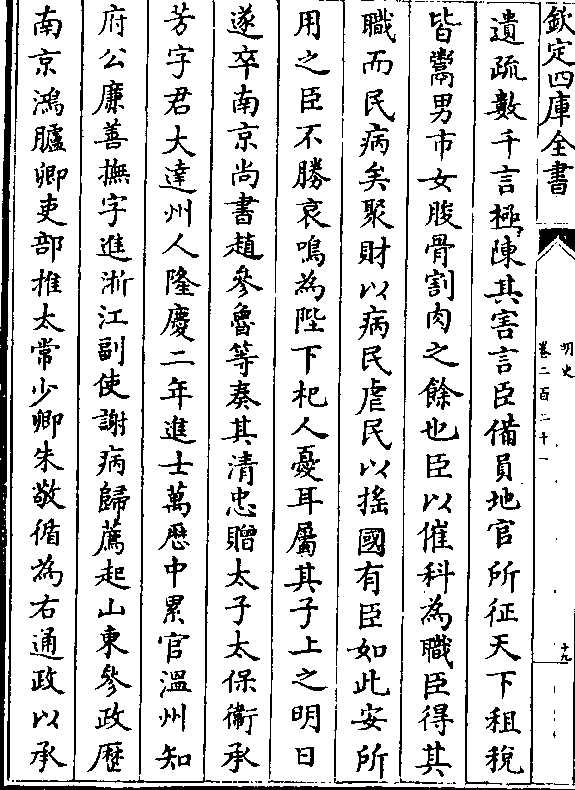 欽定四庫全書
明史
卷二百二十一
十九
遺疏數千言極陳其害言臣備員地官所征天下租稅
皆鬻男市女朘骨割肉之餘也臣以催科為職臣得其
職而民病矣聚財以病民虐民以搖國有臣如此安所
用之臣不勝哀鳴為陛下杞人憂耳屬其子上之明日
遂卒南京尚書趙參魯等奏其清忠贈太子太保衛承
芳字君大達州人隆慶二年進士萬歷中累官溫州知
府公廉善撫字進浙江副使謝病歸薦起山東參政歷
南京鴻臚卿吏部推太常少卿朱敬循為右通政以承